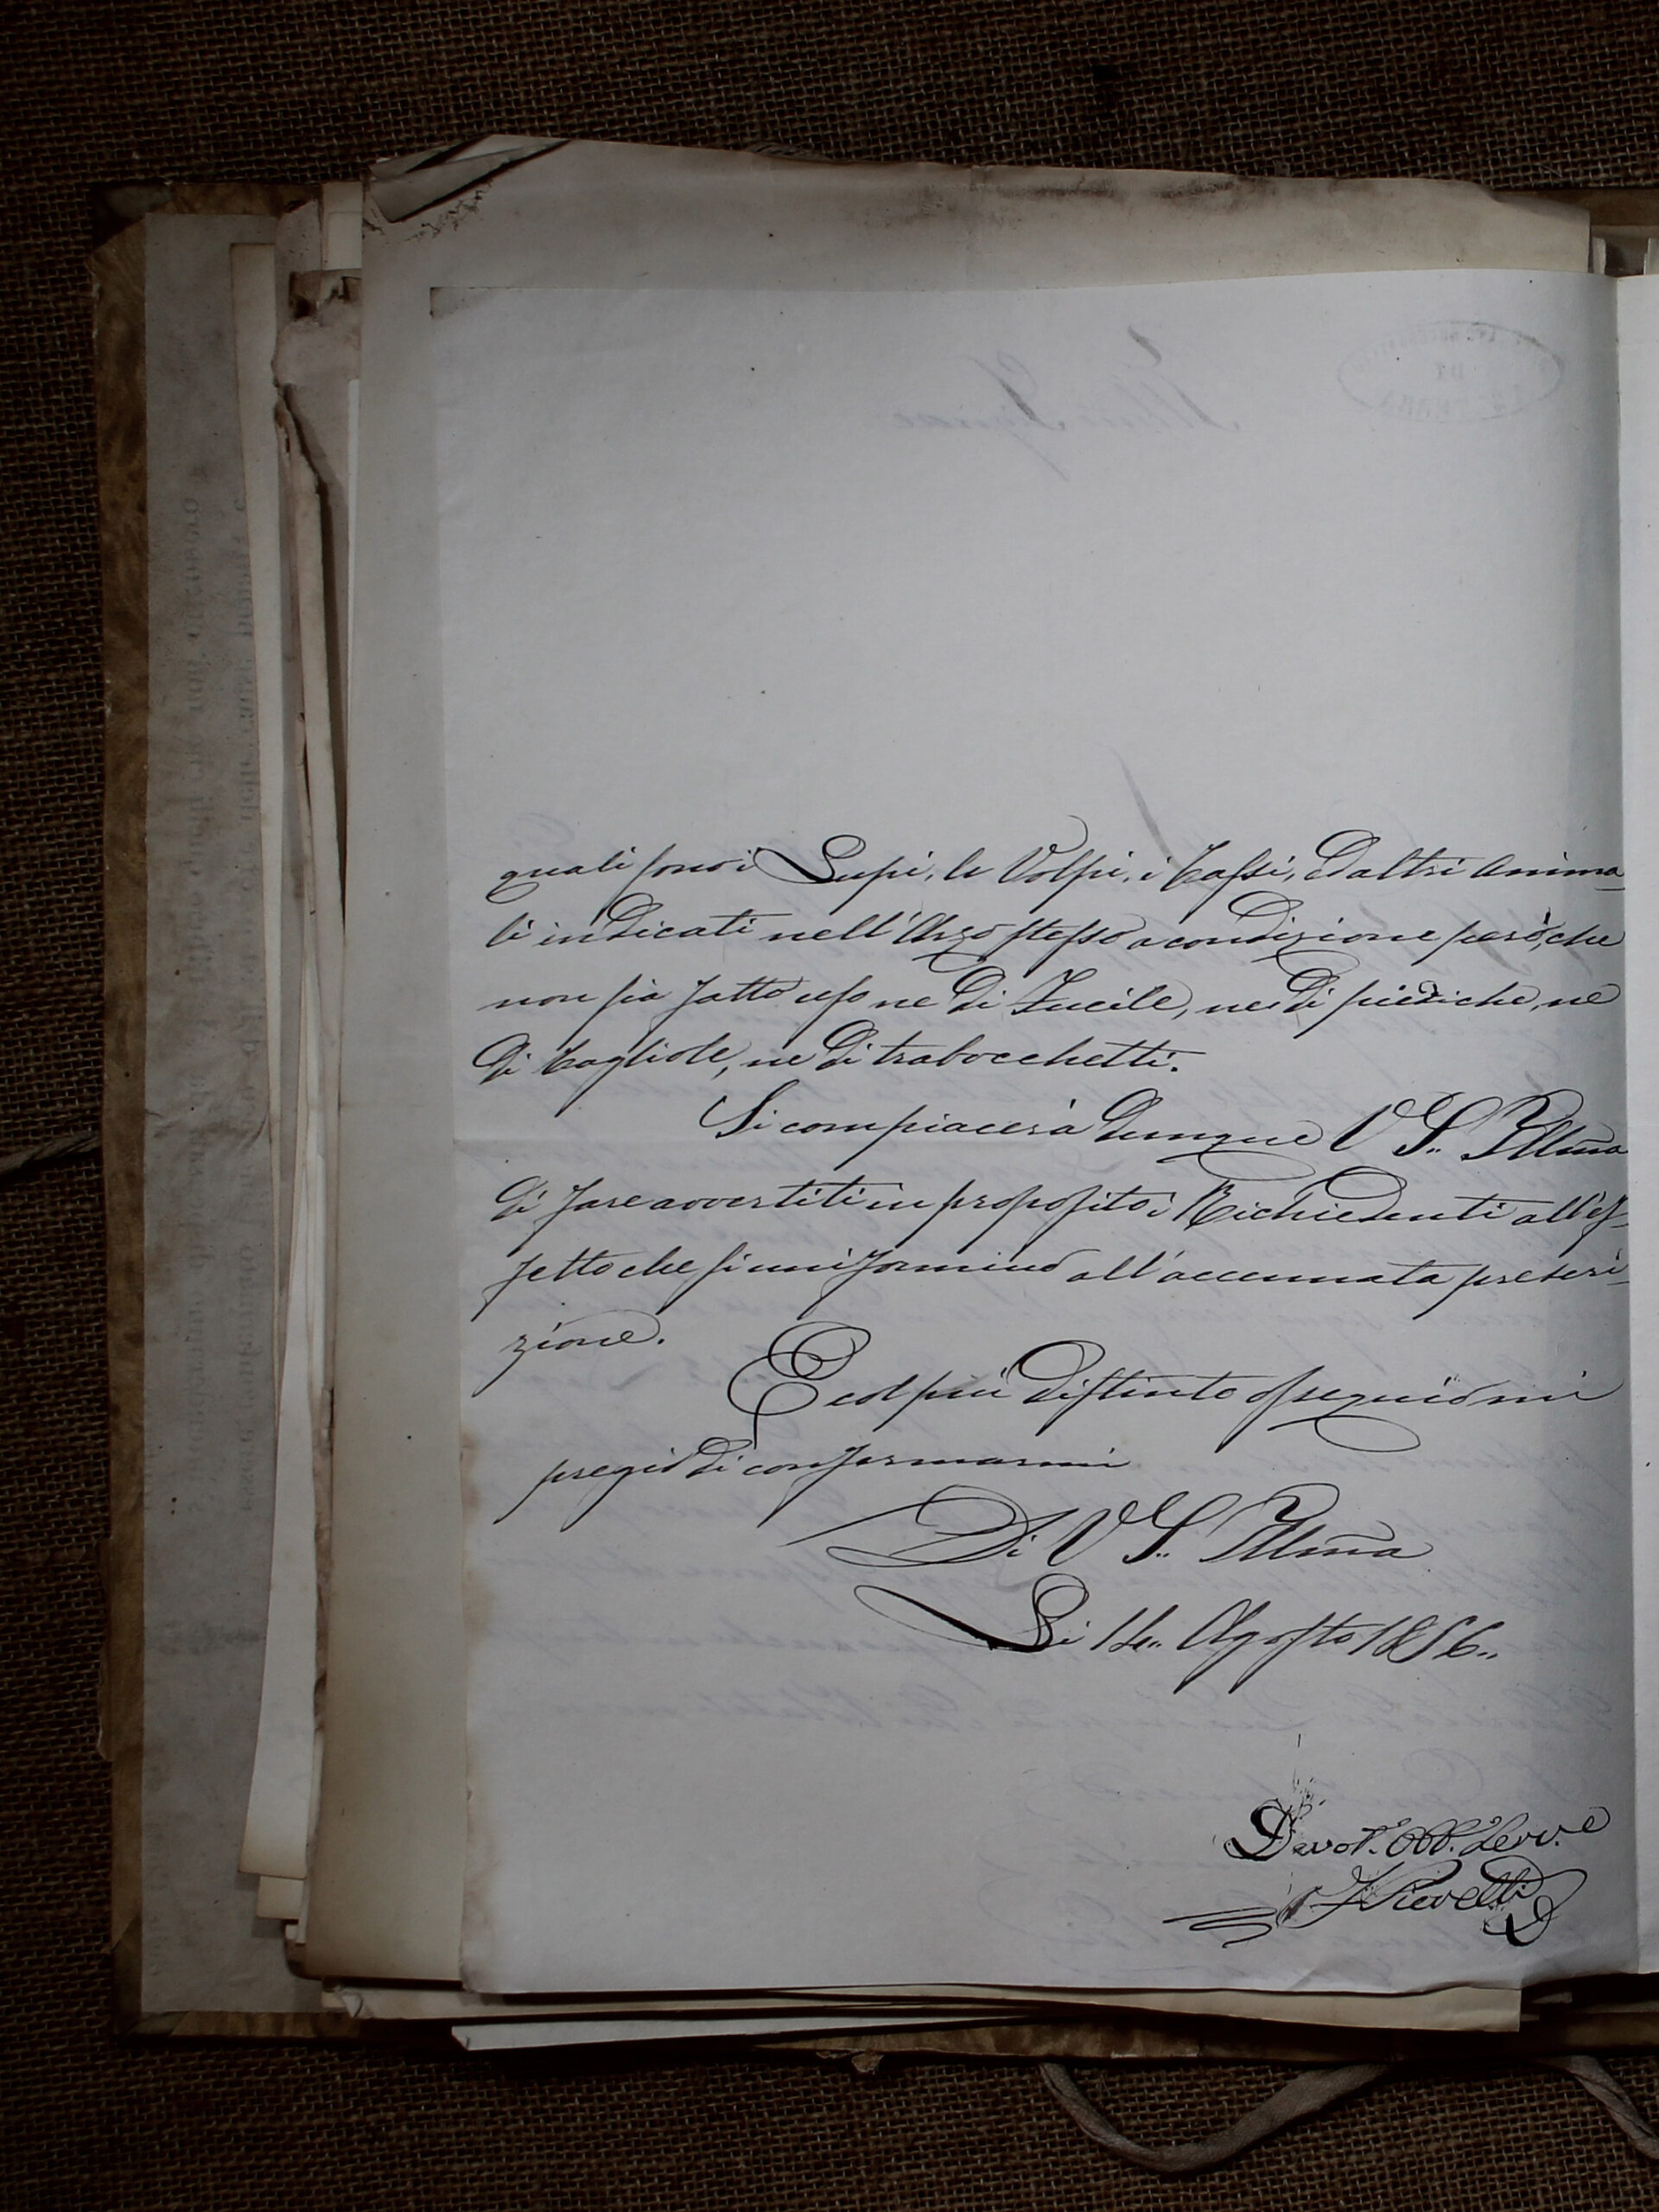 quali sono i Lupi, le Volpi, i Tassi, ed altri anima-
li indicati nell'Arzo stesso a condizione però, che
non sia fatto uso ne di Fucile, ne di piediche, ne
di tagliole, ne di trabocchetti.
Si compiacerà dunque V. S. Illma
di fare avvertiti in proposito i Richiedenti all'ef-
fetto che si uniformino all'accennata prescri-
zione.
E col più distinto ossequio mi
pregio di confermarmi
Di V. S. Illma
Li Agosto 1856.
Devot. Obb. Serv.e